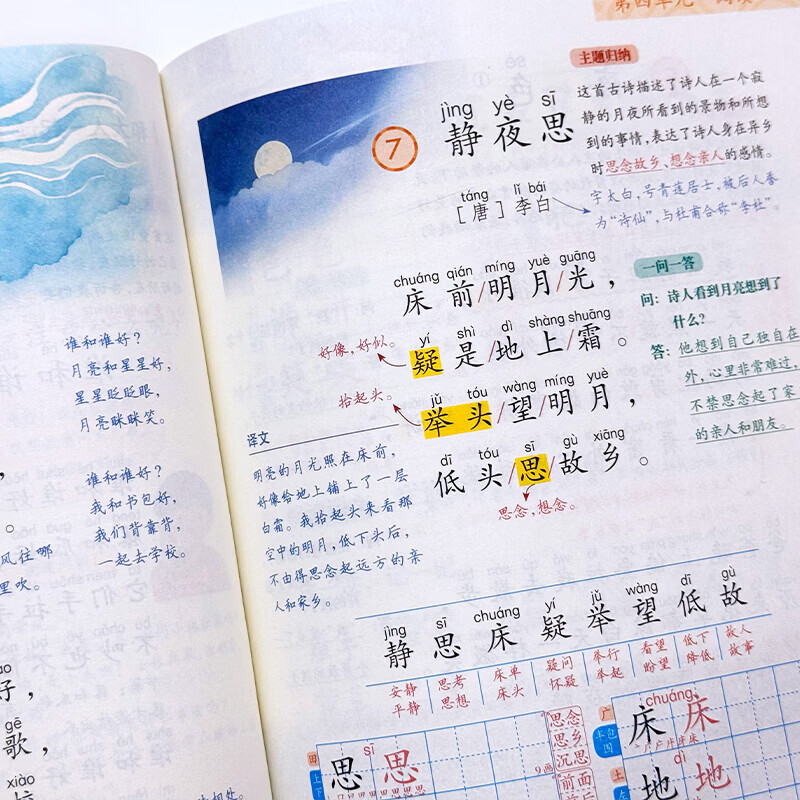 谁和谁好？
月亮和星星好，
星星眨眨眼，
月亮眯眯笑。
谁和谁好？
我和书包好，
我们背靠背，
一起去学校。
。
风往哪
里吹。
好，
gē
歌，
xiào
第四单元
7
jìng yè sī
静夜思
táng lǐ bái
［唐］李白
主题归纳
这首古诗描述了诗人在一个寂
静的月夜所看到的景物和所想
到的事情，表达了诗人身在异乡
时思念故乡、想念亲人的感情。
字太白，号青莲居士，被后人誉
为“诗仙”，与杜甫合称“李杜”。
chuáng qián míng yuè guāng
床前/明月/光，
yí shì dì shàng shuāng
疑是/地上/霜。
jǔ tóu wàng míng yuè
举头/望/明月，
dī tóu sī gù xiāng
低头/思/故乡。
好像，好似。
抬起头。
思念，想念。
一问一答
问：诗人看到月亮想到了
什么？
答：他想到自己独自在
外，心里非常难过，
不禁思念起了家
的亲人和朋友。
译文
明亮的月光照在床前，
好像给地上铺上了一层
白霜。我抬起头来看那
空中的明月，低下头后，
不由得思念起远方的亲
人和家乡。
jìng sī chuáng yí jǔ wàng dī gù
静 思 床 疑 举 望 低 故
安静 思考 床单 疑问 举行 看望 低下 故人
平静 思想 床头 怀疑 举起 盼望 降低 故事
sī
思 思
田
上下
9画
思念
思乡
沉思
前面
chuáng
床 床
广
半包围
dì
地 地
土